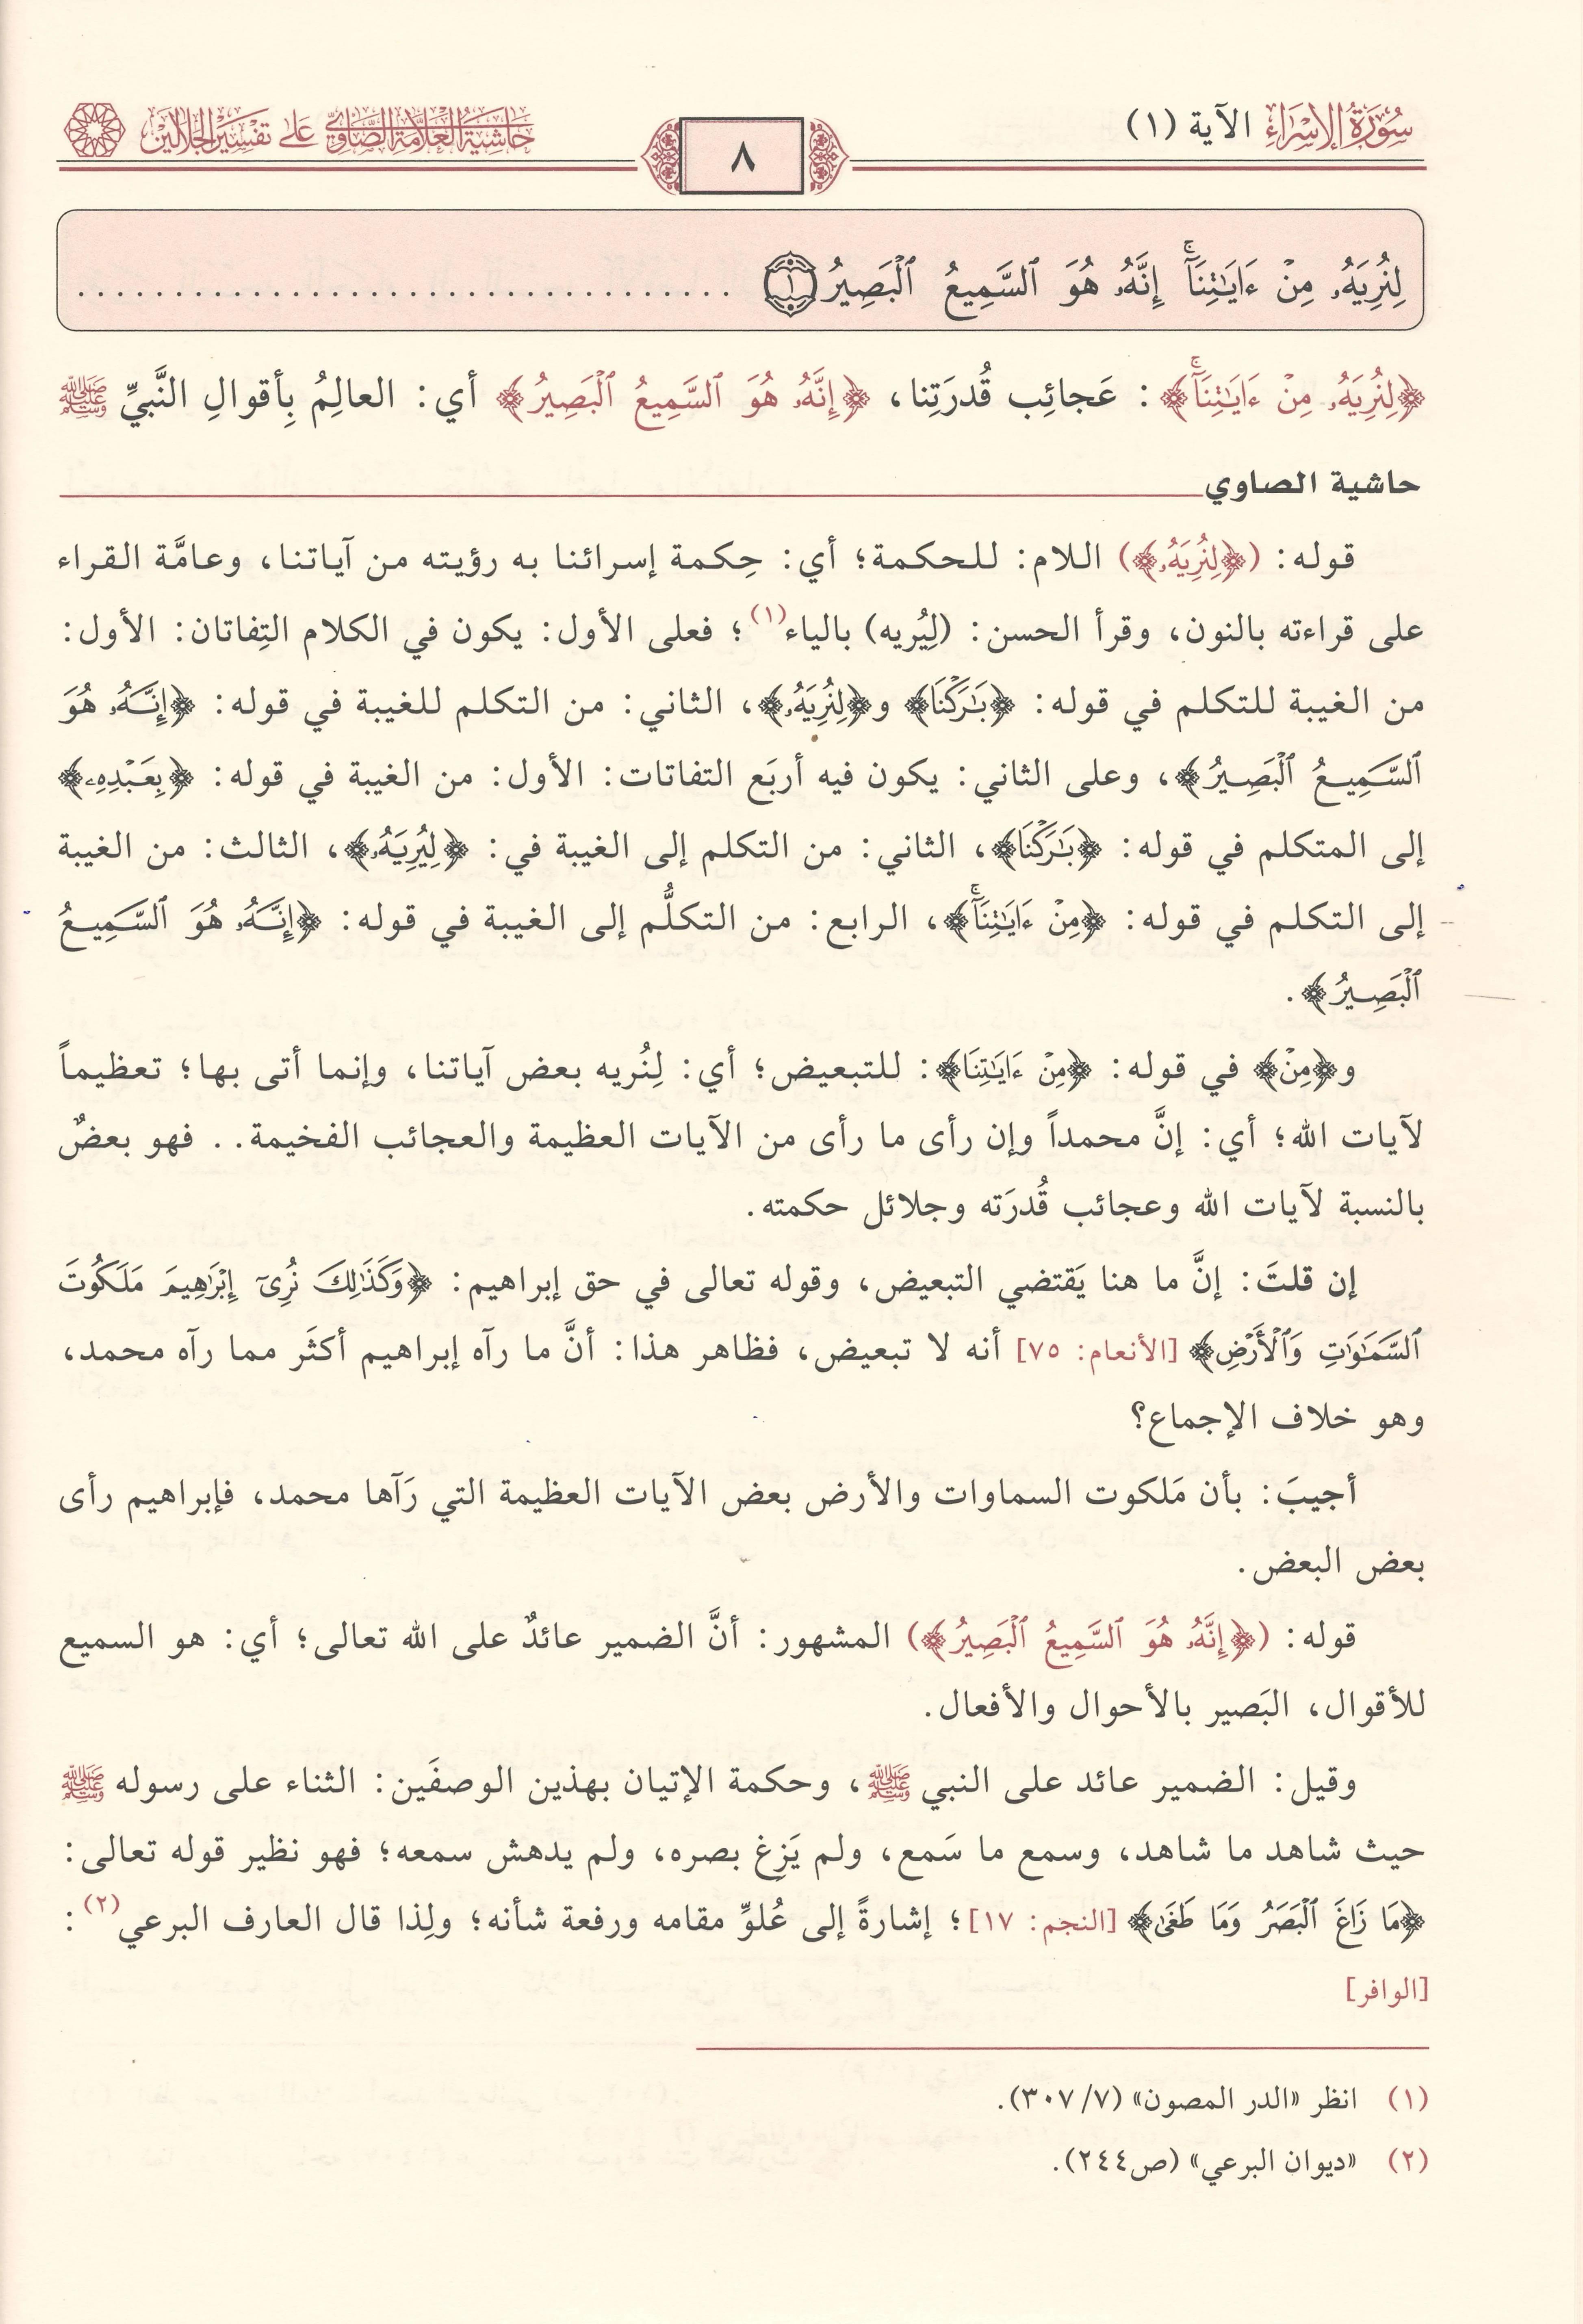 سُورَةُ الإِسْرَاءِ الآية (١)
٨
حَاشِيَةُ العَلَّامَةِ الصَّاوِيّ عَلَى تَفْسِيرِ الجَلَالَين
لِنُرِيَهُۥ مِنْ ءَايَـٰتِنَآۚ إِنَّهُۥ هُوَ ٱلسَّمِيعُ ٱلْبَصِيرُ ١ ..................................
﴿لِنُرِيَهُۥ مِنْ ءَايَـٰتِنَآۚ﴾: عَجائِب قُدرَتِنا، ﴿إِنَّهُۥ هُوَ ٱلسَّمِيعُ ٱلْبَصِيرُ﴾ أي: العالِمُ بِأقوالِ النَّبيِّ ﷺ
حاشية الصاوي
قوله: (﴿لِنُرِيَهُۥ﴾) اللام: للحكمة؛ أي: حِكمة إسرائنا به رؤيته من آياتنا، وعامَّة القراء
على قراءته بالنون، وقرأ الحسن: (لِيُريه) بالياء(١)؛ فعلى الأول: يكون في الكلام التِفاتان: الأول:
من الغيبة للتكلم في قوله: ﴿بَـٰرَكْنَا﴾ و﴿لِنُرِيَهُۥ﴾، الثاني: من التكلم للغيبة في قوله: ﴿إِنَّهُۥ هُوَ
ٱلسَّمِيعُ ٱلْبَصِيرُ﴾، وعلى الثاني: يكون فيه أربَع التفاتات: الأول: من الغيبة في قوله: ﴿بِعَبْدِهِۦ﴾
إلى المتكلم في قوله: ﴿بَـٰرَكْنَا﴾، الثاني: من التكلم إلى الغيبة في: ﴿لِيُرِيَهُۥ﴾، الثالث: من الغيبة
إلى التكلم في قوله: ﴿مِنْ ءَايَـٰتِنَآۚ﴾، الرابع: من التكلُّم إلى الغيبة في قوله: ﴿إِنَّهُۥ هُوَ ٱلسَّمِيعُ
ٱلْبَصِيرُ﴾.
و﴿مِنْ﴾ في قوله: ﴿مِنْ ءَايَـٰتِنَا﴾: للتبعيض؛ أي: لِنُريه بعض آياتنا، وإنما أتى بها؛ تعظيماً
لآيات الله؛ أي: إنَّ محمداً وإن رأى ما رأى من الآيات العظيمة والعجائب الفخيمة.. فهو بعضٌ
بالنسبة لآيات الله وعجائب قُدرَته وجلائل حكمته.
إن قلتَ: إنَّ ما هنا يَقتضي التبعيض، وقوله تعالى في حق إبراهيم: ﴿وَكَذَٰلِكَ نُرِىٓ إِبْرَٰهِيمَ مَلَكُوتَ
ٱلسَّمَـٰوَٰتِ وَٱلْأَرْضِ﴾ [الأنعام: ٧٥] أنه لا تبعيض، فظاهر هذا: أنَّ ما رآه إبراهيم أكثَر مما رآه محمد،
وهو خلاف الإجماع؟
أجيبَ: بأن مَلكوت السماوات والأرض بعض الآيات العظيمة التي رَآها محمد، فإبراهيم رأى
بعض البعض.
قوله: (﴿إِنَّهُۥ هُوَ ٱلسَّمِيعُ ٱلْبَصِيرُ﴾) المشهور: أنَّ الضمير عائدٌ على الله تعالى؛ أي: هو السميع
للأقوال، البَصير بالأحوال والأفعال.
وقيل: الضمير عائد على النبي ﷺ، وحكمة الإتيان بهذين الوصفَين: الثناء على رسوله ﷺ
حيث شاهد ما شاهد، وسمع ما سَمع، ولم يَزِغ بصره، ولم يدهش سمعه؛ فهو نظير قوله تعالى:
﴿مَا زَاغَ ٱلْبَصَرُ وَمَا طَغَىٰ﴾ [النجم: ١٧]؛ إشارةً إلى عُلوِّ مقامه ورفعة شأنه؛ ولِذا قال العارف البرعي(٢):
[الوافر]
(١) انظر «الدر المصون» (٣٠٧/٧).
(٢) «ديوان البرعي» (ص٢٤٤).